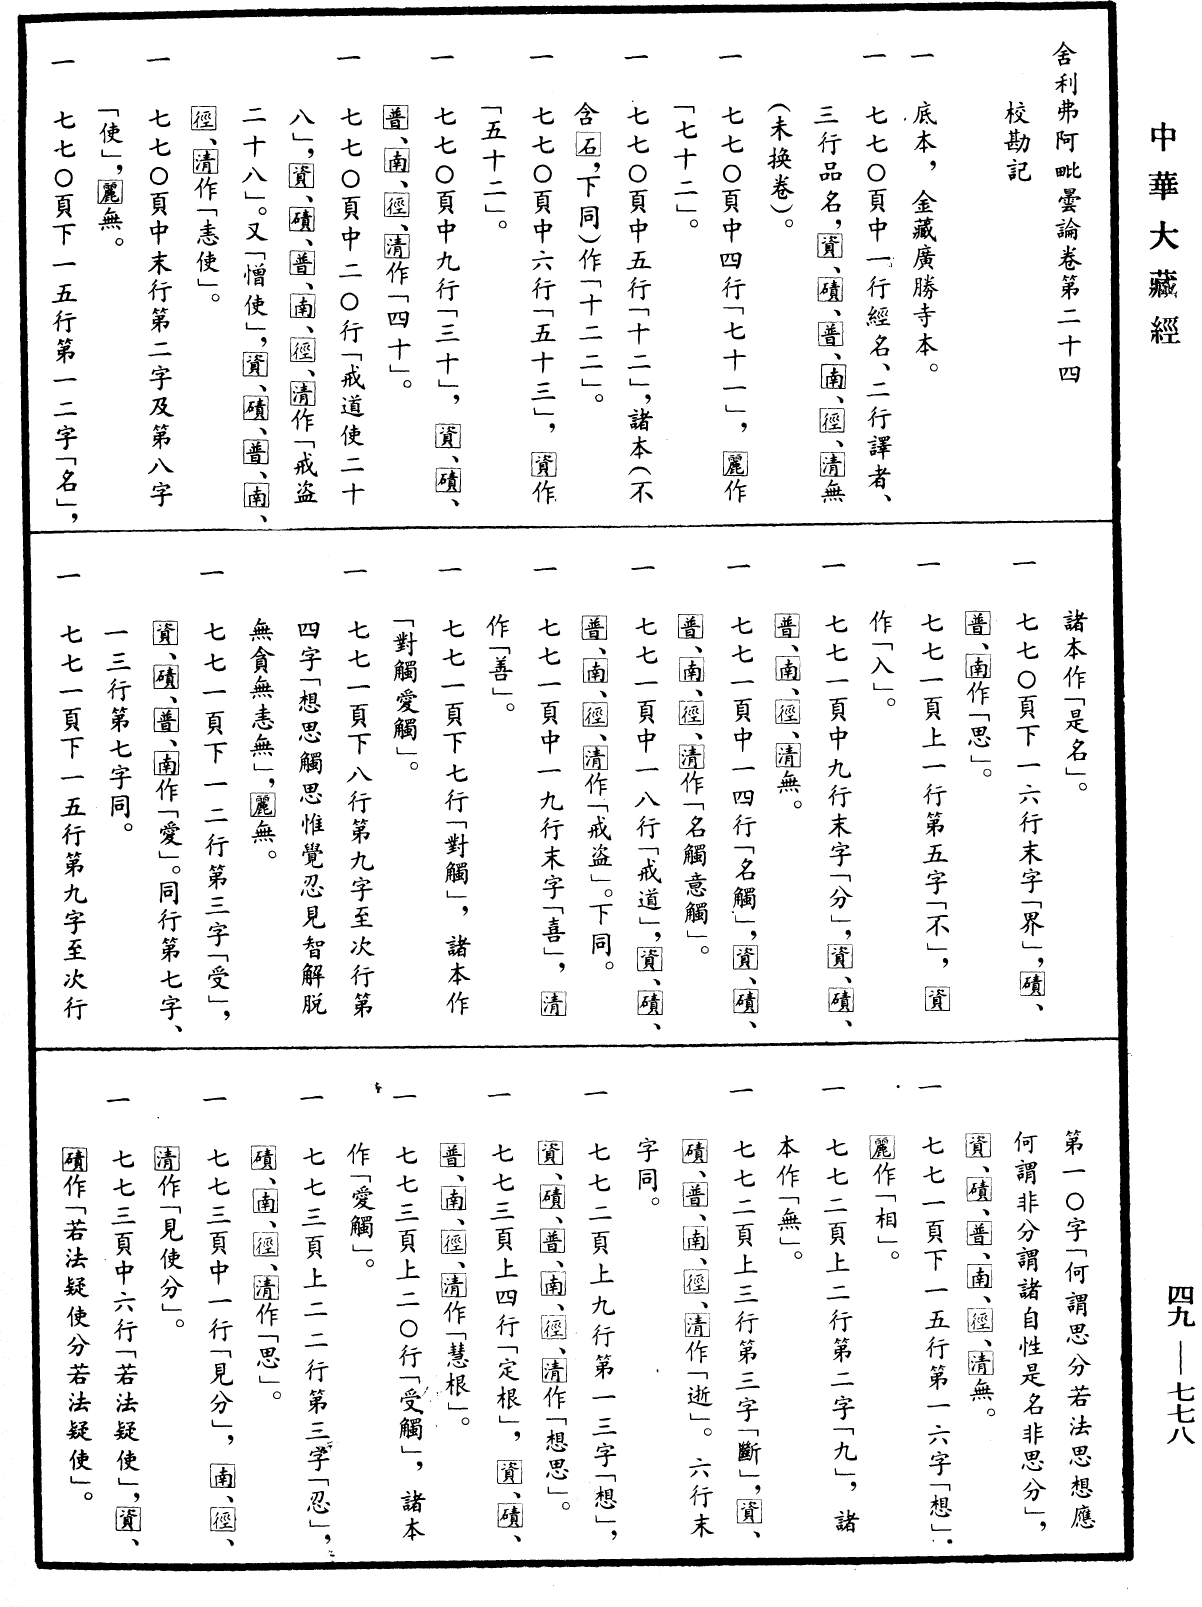 中華大藏經
四九——七七八
舍利弗阿毗曇論卷第二十四
校勘記
一 底本，金藏廣勝寺本。
一 七七〇頁中一行經名、二行譯者、
三行品名，資、磧、普、南、徑、清無
（未換卷）。
一 七七〇頁中四行「七十一」，麗作
「七十二」。
一 七七〇頁中五行「十二」，諸本（不
含石，下同）作「十二二」。
一 七七〇頁中六行「五十三」，資作
「五十二」。
一 七七〇頁中九行「三十」，資、磧、
普、南、徑、清作「四十」。
一 七七〇頁中二〇行「戒道使二十
八」，資、磧、普、南、徑、清作「戒盜
二十八」。又「憎使」，資、磧、普、南、
徑、清作「恚使」。
一 七七〇頁中末行第二字及第八字
「使」，麗無。
一 七七〇頁下一五行第一二字「名」，
諸本作「是名」。
一 七七〇頁下一六行末字「界」，磧、
普、南作「思」。
一 七七一頁上一行第五字「不」，資
作「入」。
一 七七一頁中九行末字「分」，資、磧、
普、南、徑、清無。
一 七七一頁中一四行「名觸」，資、磧、
普、南、徑、清作「名觸意觸」。
一 七七一頁中一八行「戒道」，資、磧、
普、南、徑、清作「戒盜」。下同。
一 七七一頁中一九行末字「喜」，清
作「善」。
一 七七一頁下七行「對觸」，諸本作
「對觸愛觸」。
一 七七一頁下八行第九字至次行第
四字「想思觸思惟覺忍見智解脫
無貪無恚無」，麗無。
一 七七一頁下一二行第三字「受」，
資、磧、普、南作「愛」。同行第七字、
一三行第七字同。
一 七七一頁下一五行第九字至次行
第一〇字「何謂思分若法思想應
何謂非分謂諸自性是名非思分」，
資、磧、普、南、徑、清無。
一 七七一頁下一五行第一六字「想」，
麗作「相」。
一 七七二頁上二行第二字「九」，諸
本作「無」。
一 七七二頁上三行第三字「斷」，資、
磧、普、南、徑、清作「逝」。六行末
字同。
一 七七二頁上九行第一三字「想」，
資、磧、普、南、徑、清作「想思」。
一 七七三頁上四行「定根」，資、磧、
普、南、徑、清作「慧根」。
一 七七三頁上二〇行「受觸」，諸本
作「愛觸」。
一 七七三頁上二二行第三字「忍」，
磧、南、徑、清作「思」。
一 七七三頁中一行「見分」，南、徑、
清作「見使分」。
一 七七三頁中六行「若法疑使」，資、
磧作「若法疑使分若法疑使」。